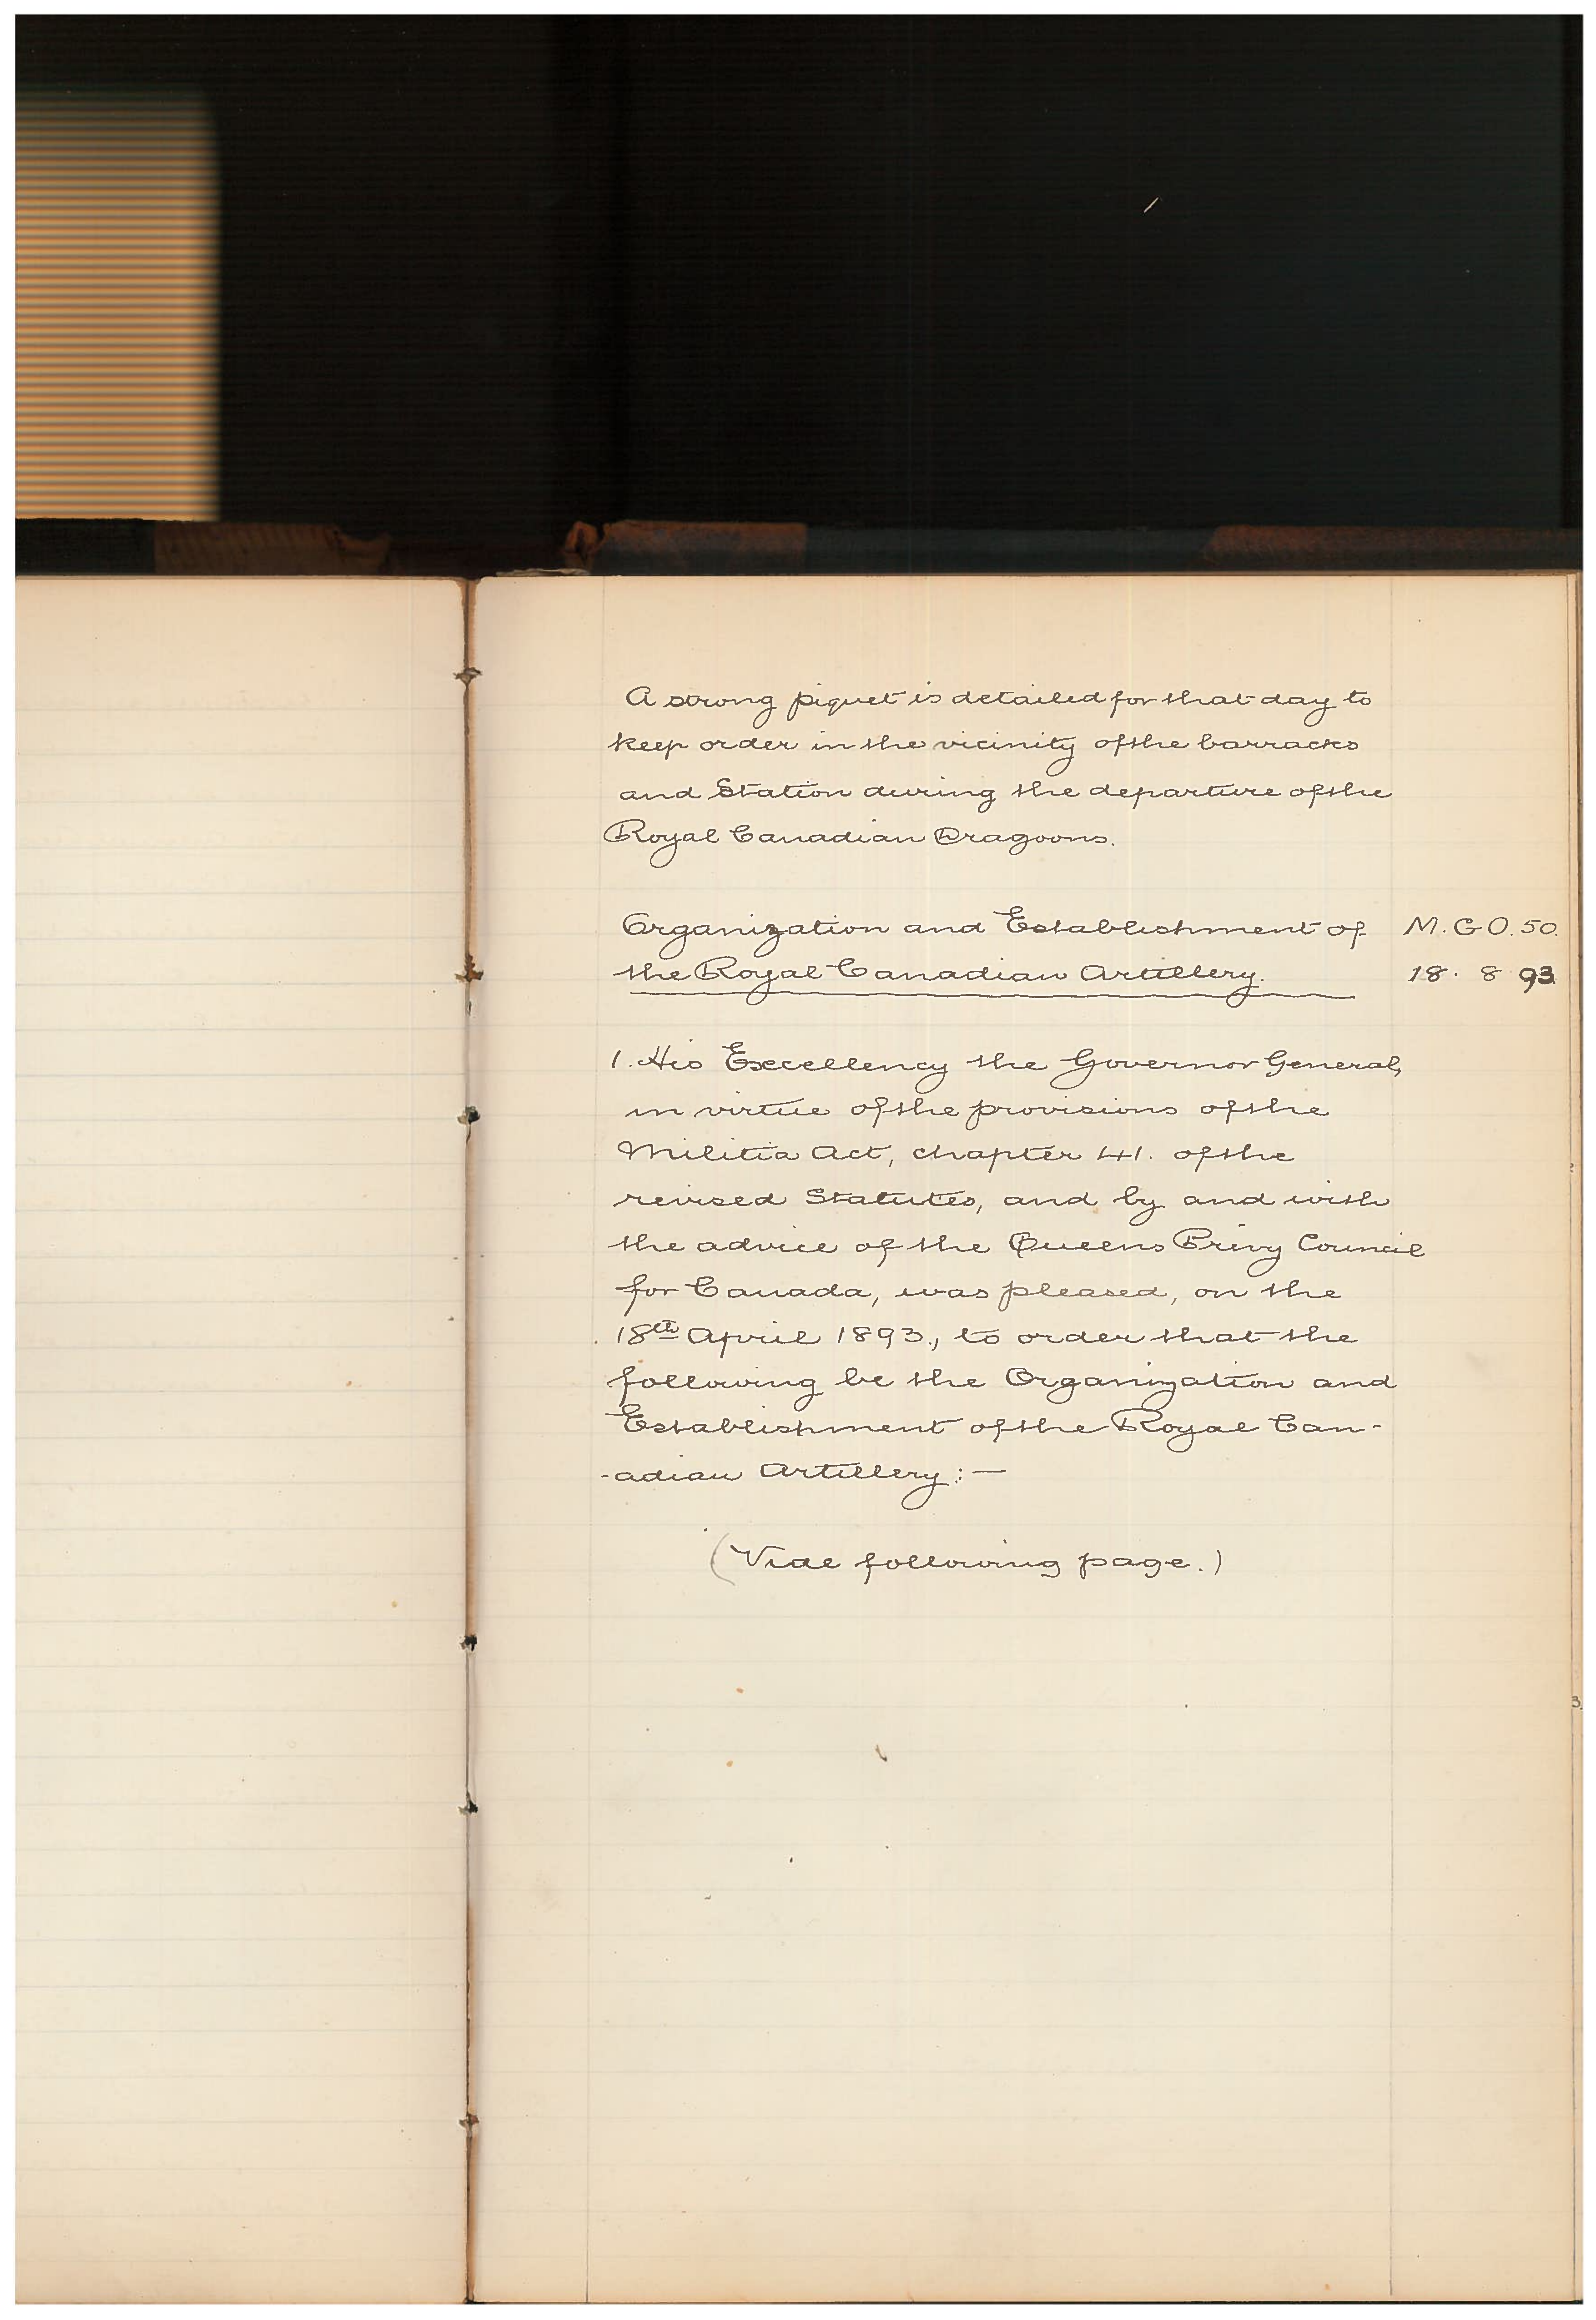 A strong piquet is detailed for that day to
keep order in the vicinity of the barracks
and Station during the departure of the
Royal Canadian Dragoons.
Organization and Establishment of M. G O. 50.
the Royal Canadian Artillery. 18. 8 93
1. His Excellency the Governor General,
in virtue of the provisions of the
Militia Act, chapter 41. of the
revised Statutes, and by and with
the advice of the Queens Privy Council
for Canada, was pleased, on the
18th April 1893., to order that the
following be the Organization and
Establishment of the Royal Can-
-adian Artillery:—
(Vide following page.)